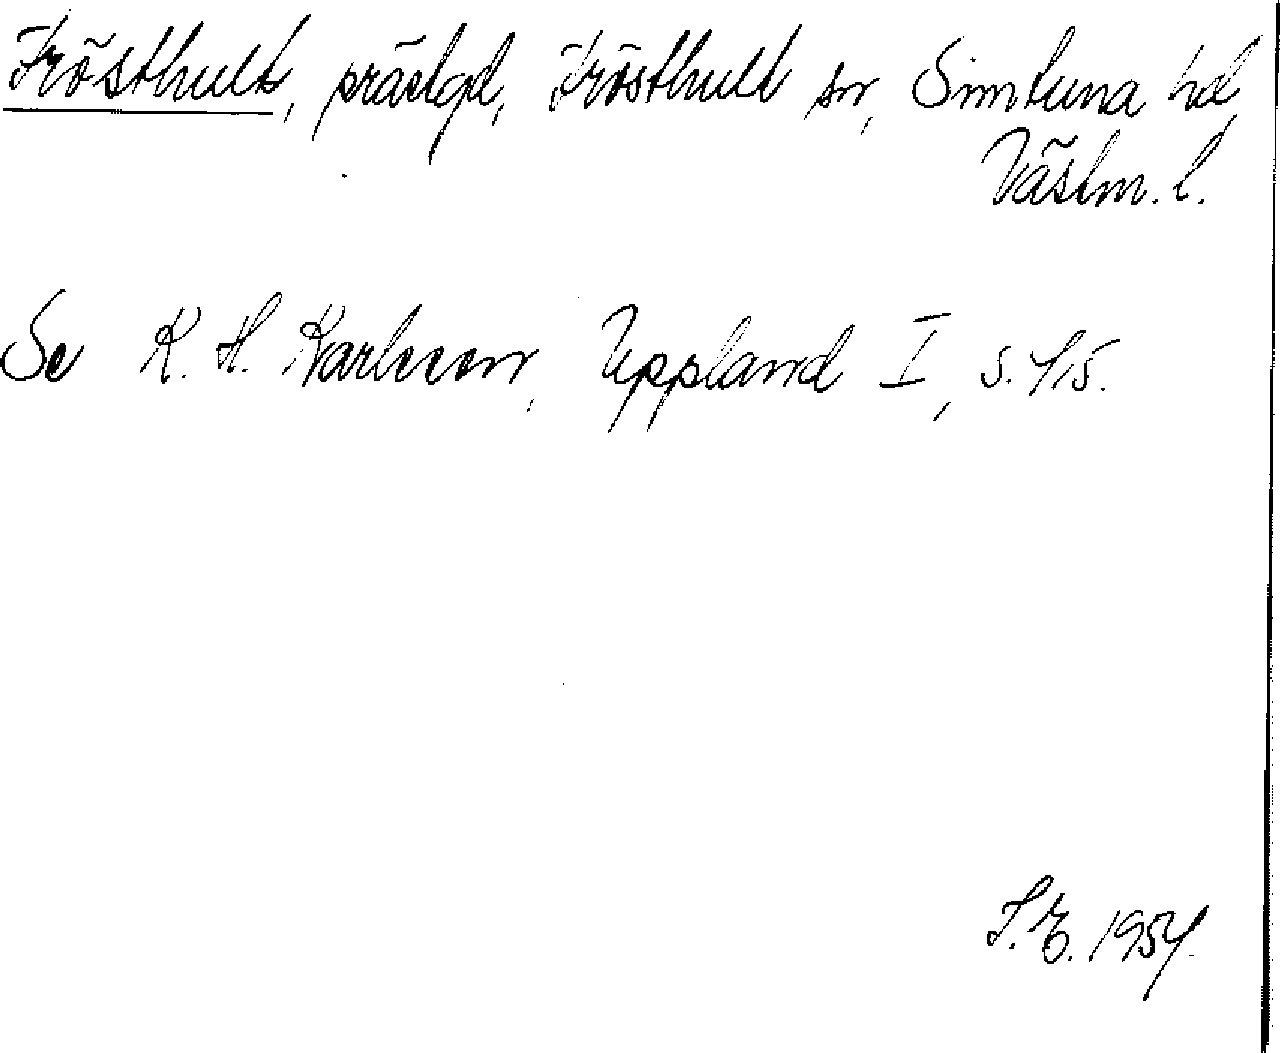 Frösthult, prästgd, Frösthult sn, Simtuna hd,
Västm. l.
Se K. H. Karlsson, Uppland I, s. 415.
S.E. 1954.